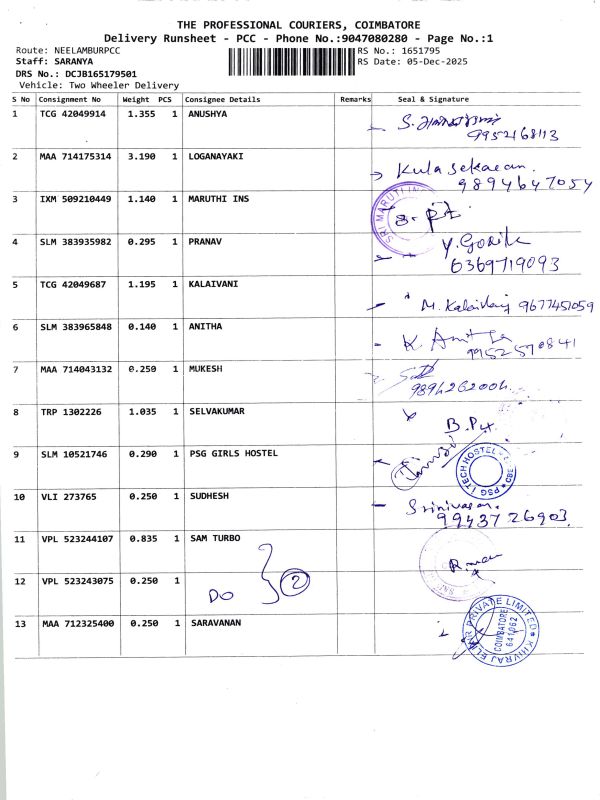 THE PROFESSIONAL COURIERS, COIMBATORE
Delivery Runsheet - PCC - Phone No.:9047080280 - Page No.:1
Route: NEELAMBURPCC RS No.: 1651795
Staff: SARANYA RS Date: 05-Dec-2025
DRS No.: DCJB165179501
Vehicle: Two Wheeler Delivery
S No Consignment No Weight PCS Consignee Details Remarks Seal & Signature
1 TCG 42049914 1.355 1 ANUSHYA
9952168113
2 MAA 714175314 3.190 1 LOGANAYAKI Kulasekaran.
9894647054
3 IXM 509210449 1.140 1 MARUTHI INS
SRI MARUTI IN
4 SLM 383935982 0.295 1 PRANAV Y.Gorik
6369719093
5 TCG 42049687 1.195 1 KALAIVANI M. Kalaivani 9677451059
6 SLM 383965848 0.140 1 ANITHA K. Anitha
9952590841
7 MAA 714043132 0.250 1 MUKESH
9894262004
8 TRP 1302226 1.035 1 SELVAKUMAR
9 SLM 10521746 0.290 1 PSG GIRLS HOSTEL
PSG I TECH HOSTEL CBE
10 VLI 273765 0.250 1 SUDHESH Srinivasan.
9943726903.
11 VPL 523244107 0.835 1 SAM TURBO
12 VPL 523243075 0.250 1 DO 2
13 MAA 712325400 0.250 1 SARAVANAN
PRIVATE LIMITED
COIMBATORE
641062